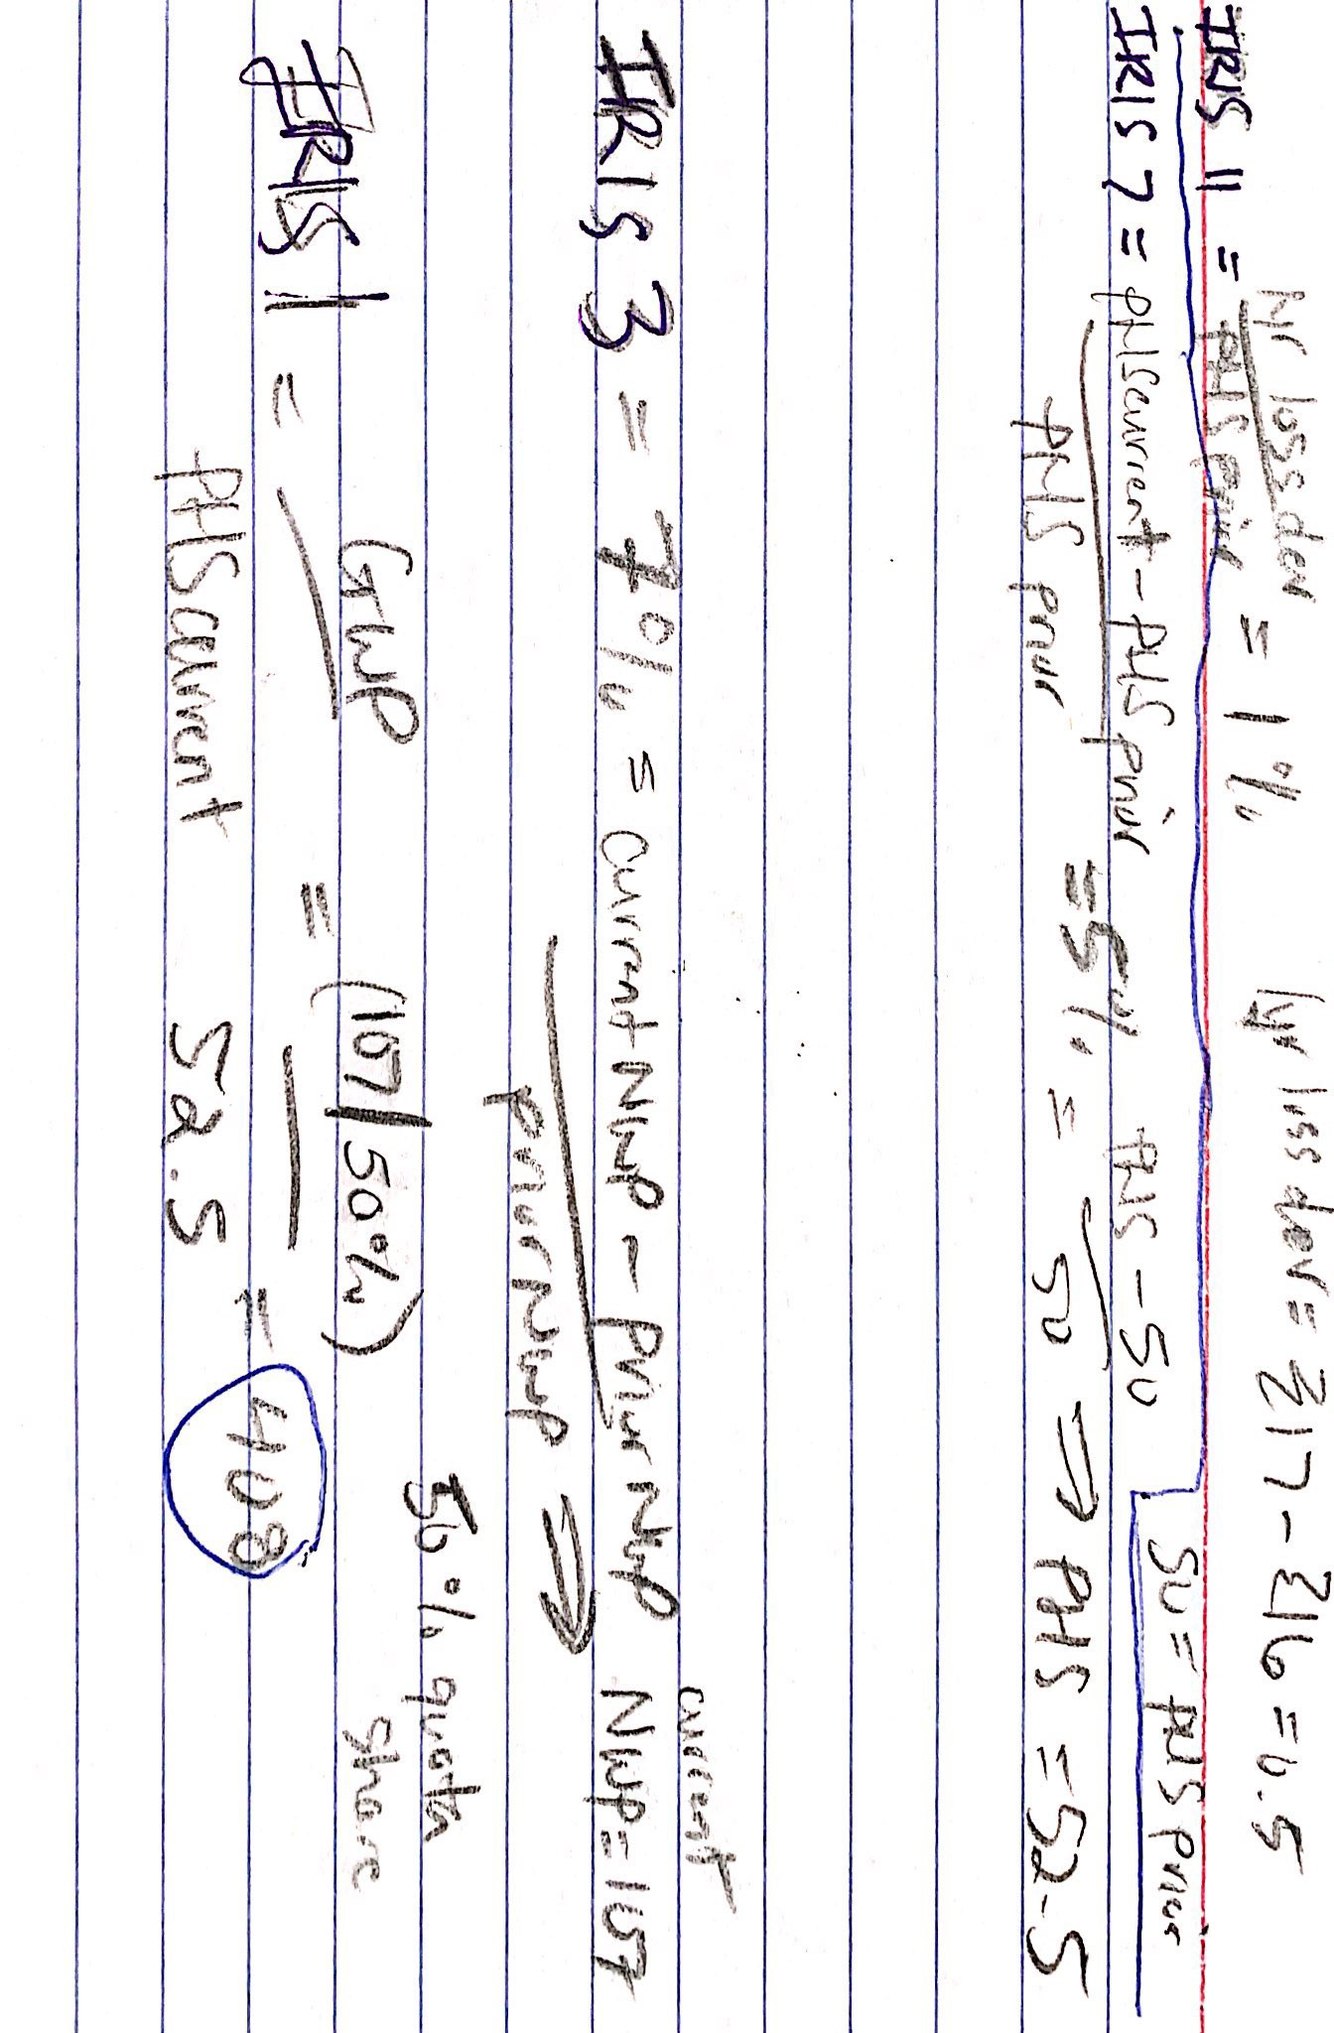 IRIS 11 = 1yr loss dev / PHS prior = 1% 1yr loss dev = Σ17 - Σ16 = 0.5
50 = PHS prior
IRIS 7 = PHS current - PHS prior / PHS prior = 5% = PHS - 50 / 50 ⇒ PHS = 52.5
IRIS 3 = 7% = current NWP - prior NWP / prior NWP ⇒ current NWP = 107
50% quota share
IRIS 1 = GWP / PHS current = (107/50%) / 52.5 = 408